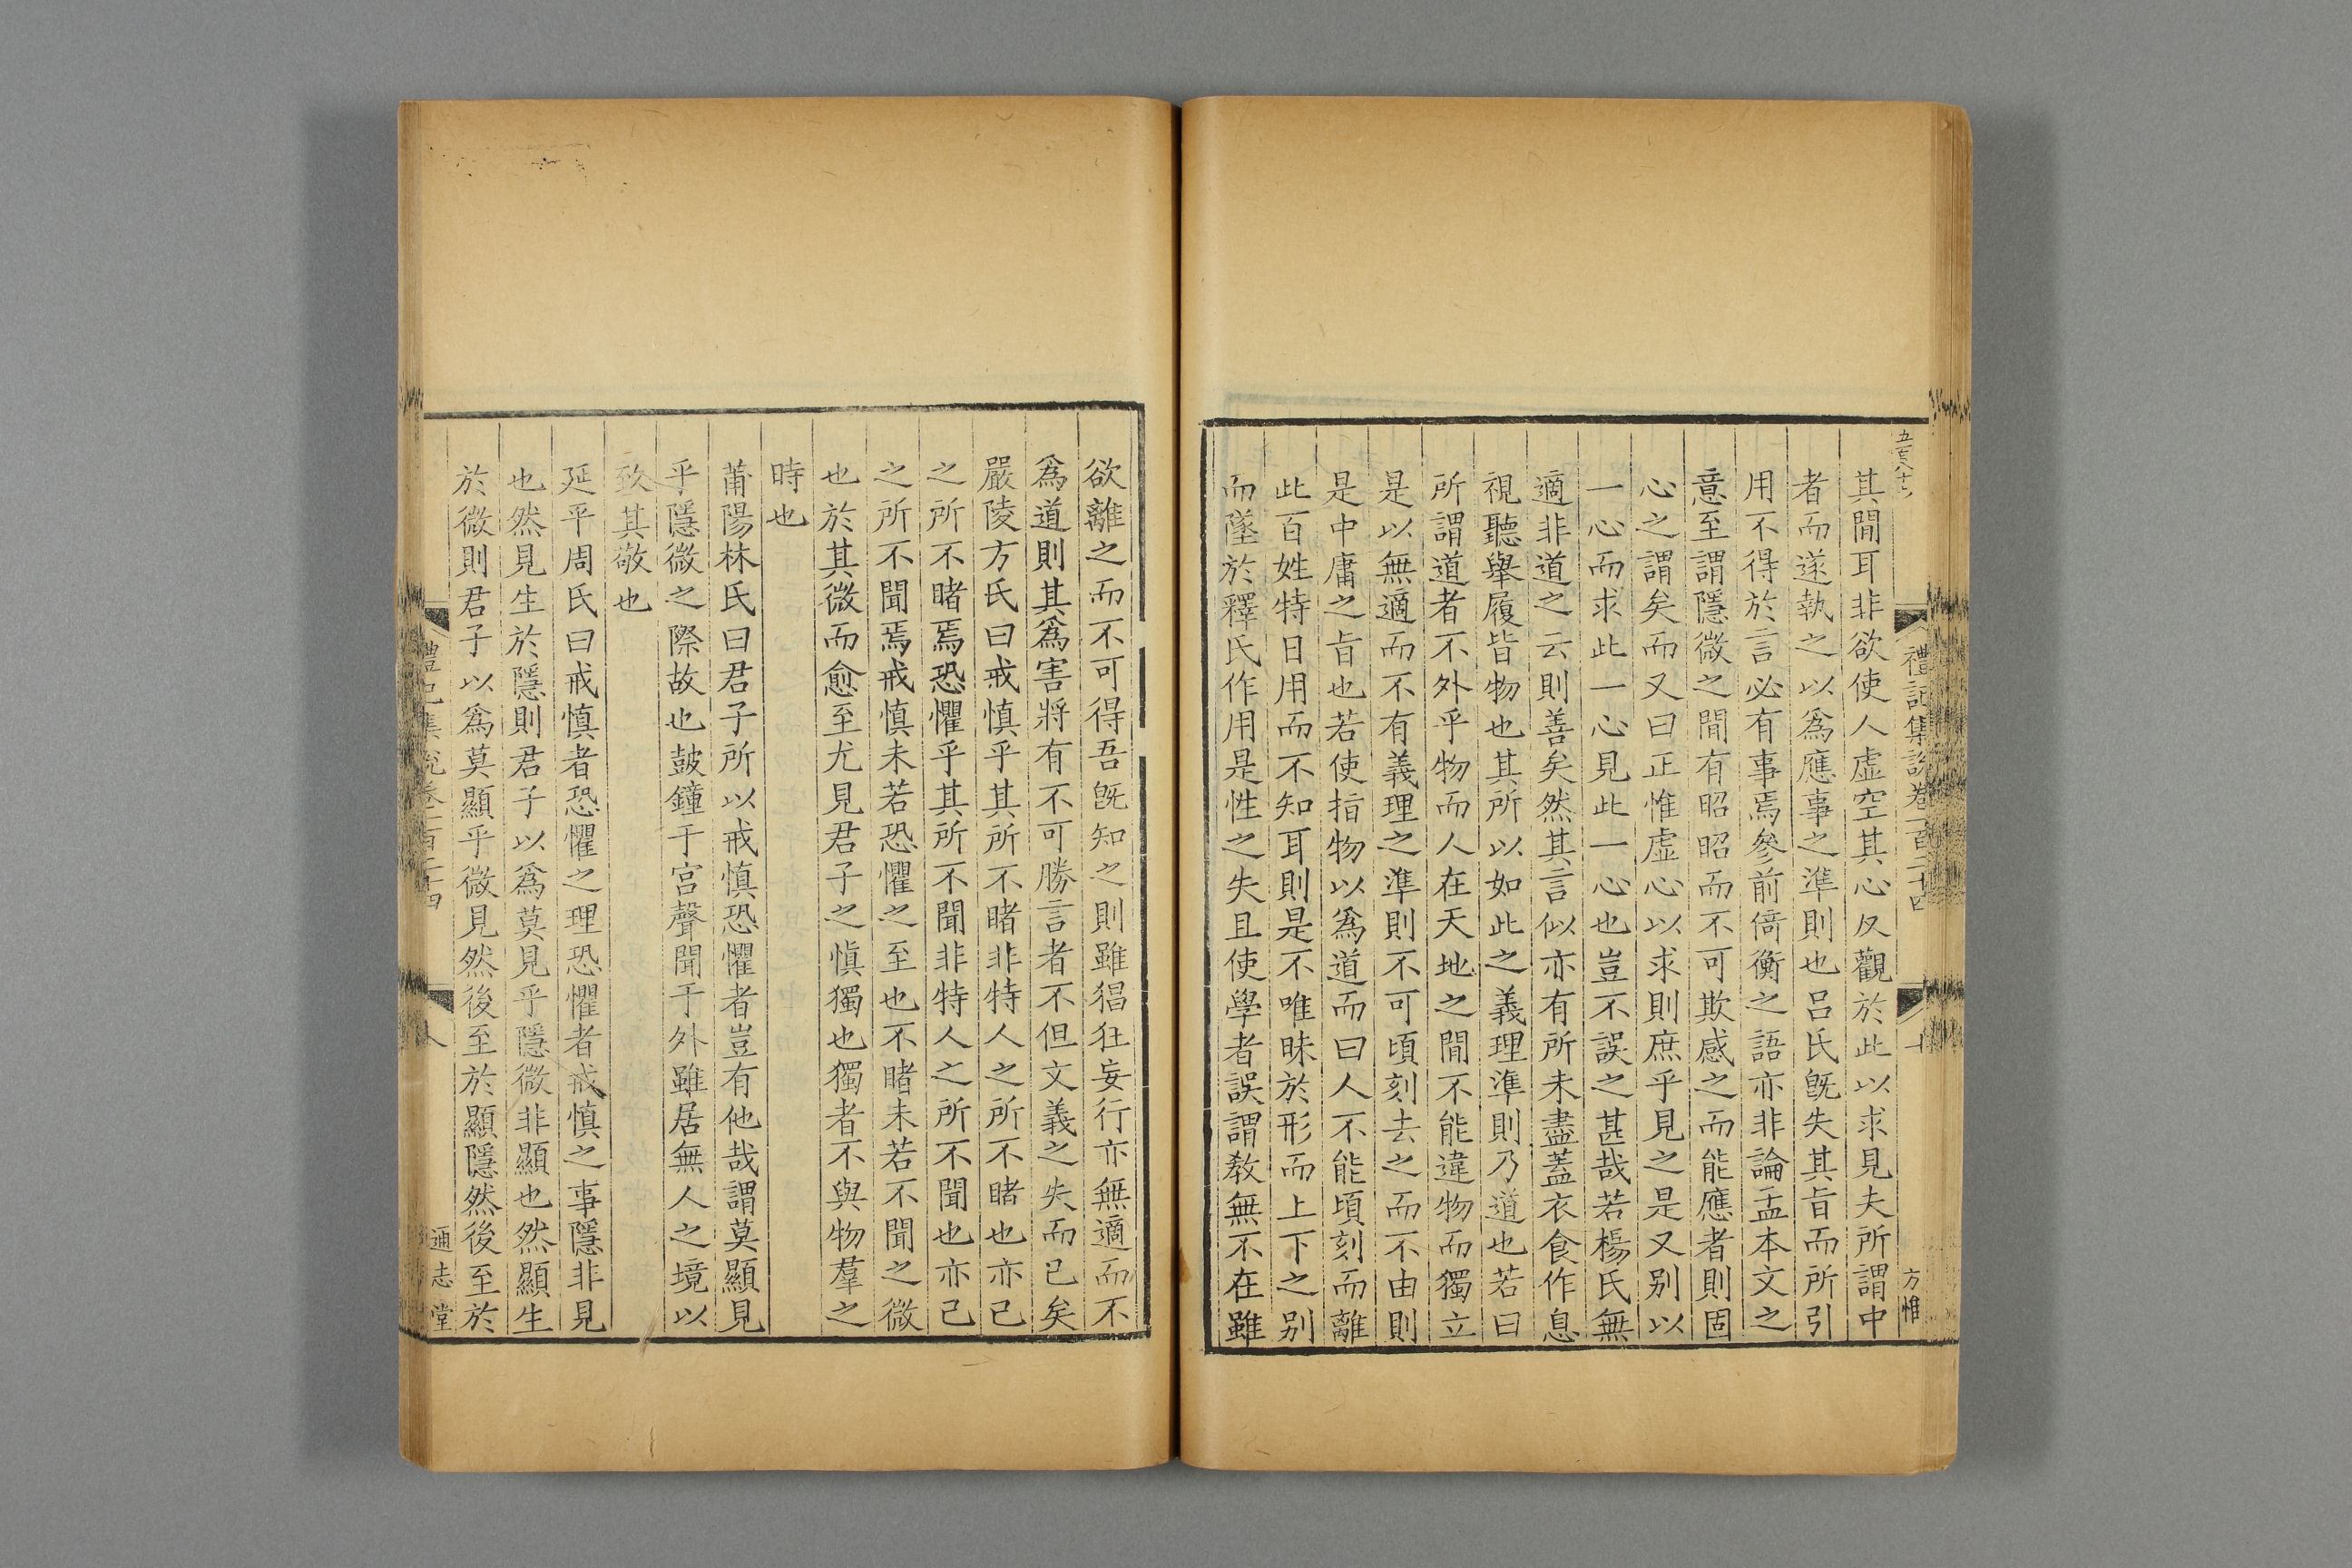 五百八十七
禮記集說卷一百二十四
方惟
其閒耳非欲使人虛空其心反觀於此以求見夫所謂中
者而遂執之以爲應事之準則也呂氏旣失其旨而所引
用不得於言必有事焉參前倚衡之語亦非論孟本文之
意至謂隱微之閒有昭昭而不可欺感之而能應者則固
心之謂矣而又曰正惟虛心以求則庶乎見之是又别以
一心而求此一心見此一心也豈不誤之甚哉若楊氏無
適非道之云則善矣然其言似亦有所未盡蓋衣食作息
視聽舉履皆物也其所以如此之義理準則乃道也若曰
所謂道者不外乎物而人在天地之閒不能違物而獨立
是以無適而不有義理之準則不可頃刻去之而不由則
是中庸之旨也若使指物以爲道而曰人不能頃刻而離
此百姓特日用而不知耳則是不唯昧於形而上下之别
而墜於釋氏作用是性之失且使學者誤謂敎無不在雖
欲離之而不可得吾旣知之則雖猖狂妄行亦無適而不
爲道則其爲害將有不可勝言者不但文義之失而已矣
嚴陵方氏曰戒慎乎其所不睹非特人之所不睹也亦已
之所不睹焉恐懼乎其所不聞非特人之所不聞也亦已
之所不聞焉戒慎未若恐懼之至也不睹未若不聞之微
也於其微而愈至尤見君子之愼獨也獨者不與物羣之
時也
莆陽林氏曰君子所以戒慎恐懼者豈有他哉謂莫顯見
乎隱微之際故也鼓鐘于宮聲聞于外雖居無人之境以
致其敬也
延平周氏曰戒慎者恐懼之理恐懼者戒慎之事隱非見
也然見生於隱則君子以爲莫見乎隱微非顯也然顯生
於微則君子以爲莫顯乎微見然後至於顯隱然後至於
禮記集說卷一百二十四
八
通志堂